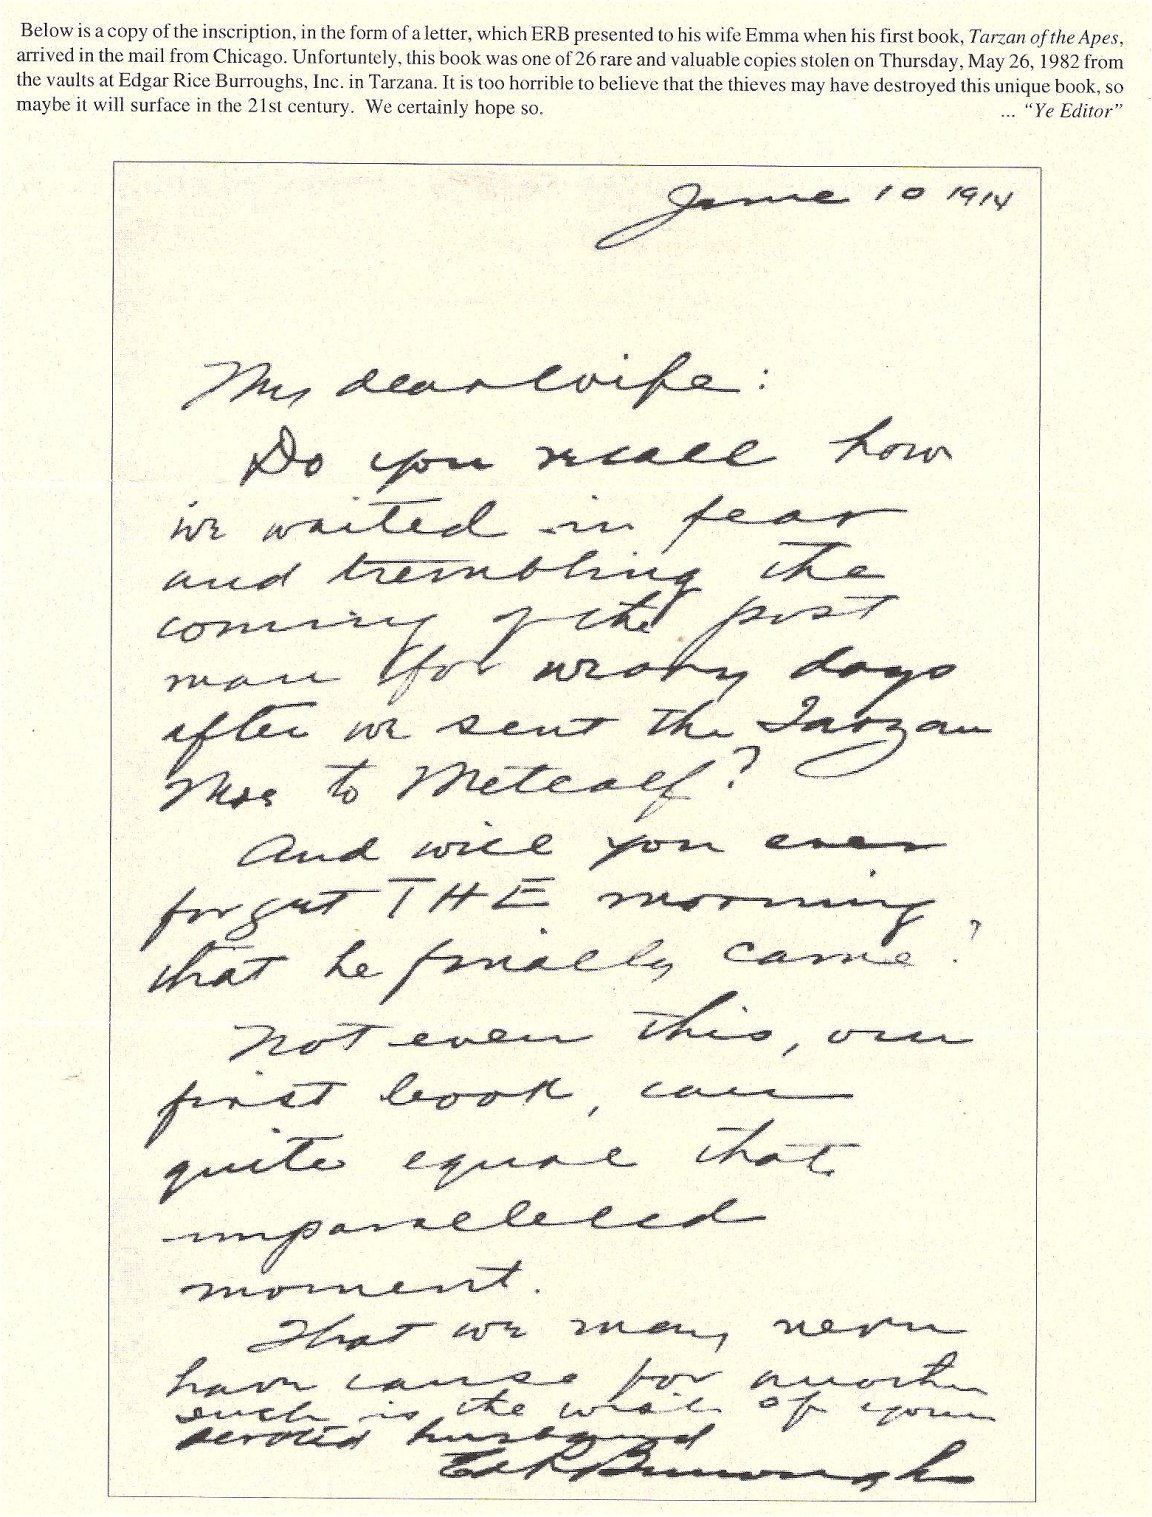 Below is a copy of the inscription, in the form of a letter, which ERB presented to his wife Emma when his first book, Tarzan of the Apes,
arrived in the mail from Chicago. Unfortuntely, this book was one of 26 rare and valuable copies stolen on Thursday, May 26, 1982 from
the vaults at Edgar Rice Burroughs, Inc. in Tarzana. It is too horrible to believe that the thieves may have destroyed this unique book, so
maybe it will surface in the 21st century. We certainly hope so.
... "Ye Editor"
June 10 1914
My dear wife:
Do you recall how
we waited in fear
and trembling the
coming of the post
man for weary days
after we sent the Tarzan
Mss to Metcalf?
And will you ever
forget THE morning
that he finally came?
Not even this, our
first book, can
quite equal that
unparalleled
moment.
That we may never
have cause for another
such is the wish of your
devoted husband
Ed R Burroughs